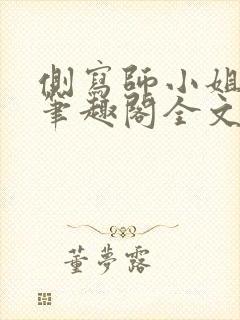 側寫師小姐
筆趣閣全文
董夢露